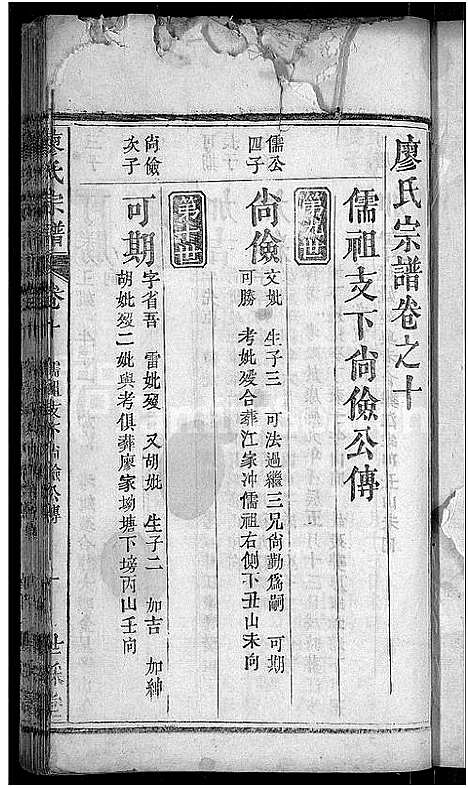 廖氏宗譜卷之十
儒祖支下尙儉公傳
第九世
儒公
四子
尙儉
文妣 生子三 可法過繼三兄尙勤爲嗣 可期
可勝 考妣歿合葬江家冲儒祖右側下丑山未向
第十世
尙儉
次子
可期
字省吾 雷妣歿 又胡妣 生子二 加吉 加紳
胡妣歿二妣與考俱葬廖家坳塘下塝丙山壬向
廖氏宗譜 卷十 儒祖支下尙儉公傳 一